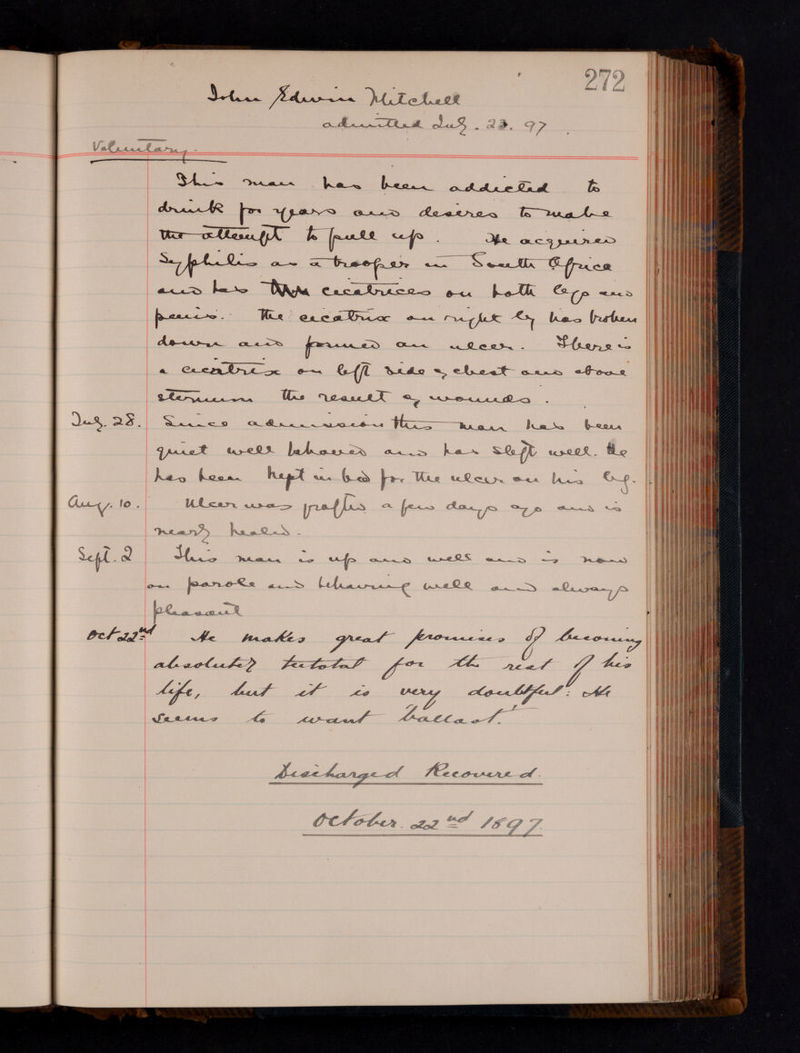 272
John Edwin Mitchell
admitted July. 23. 97
Voluntary.
This man has been addicted to
drink for years and desires to make
the attempt to pull up. He acquired
Syphilis as a trooper in South Africa
and has cicatrices on both legs and
penis. The cicatrix on right leg has broken
down and formed an ulcer. There is
a cicatrix on left side of chest and above
sternum the result of wounds.
July. 28. Since admission this man has been
quiet well behaved and has slept well. He
has been kept in bed for the ulcer on his leg.
Aug. 10. Ulcer was grafted a few days ago and is
nearly healed.
Sept. 2 This man is up and well and is now
on parole and behaving well and always
pleasant
Oct 22nd He makes great promises of becoming
absolutely teetotal for the rest of his
life, but it is very doubtful: He
seems to want ballast.
Discharged Recovered.
October. 22nd 1897.